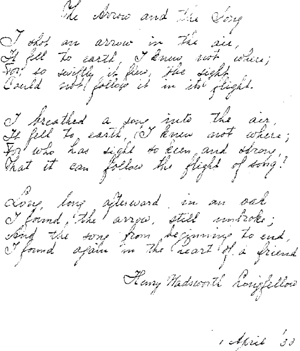 The Arrow and the Song
I shot an arrow in the air,
It fell to earth, I knew not where;
For, so swiftly it flew, the sight
Could not follow it in its flight.
I breathed a song into the air,
It fell to earth, I knew not where;
For who has sight so keen and strong,
That it can follow the flight of song?
Long, long afterward in an oak
I found the arrow, still unbroke;
And the song from beginning to end,
I found again in the heart of a friend
Henry Wadsworth Longfellow
1 April '33